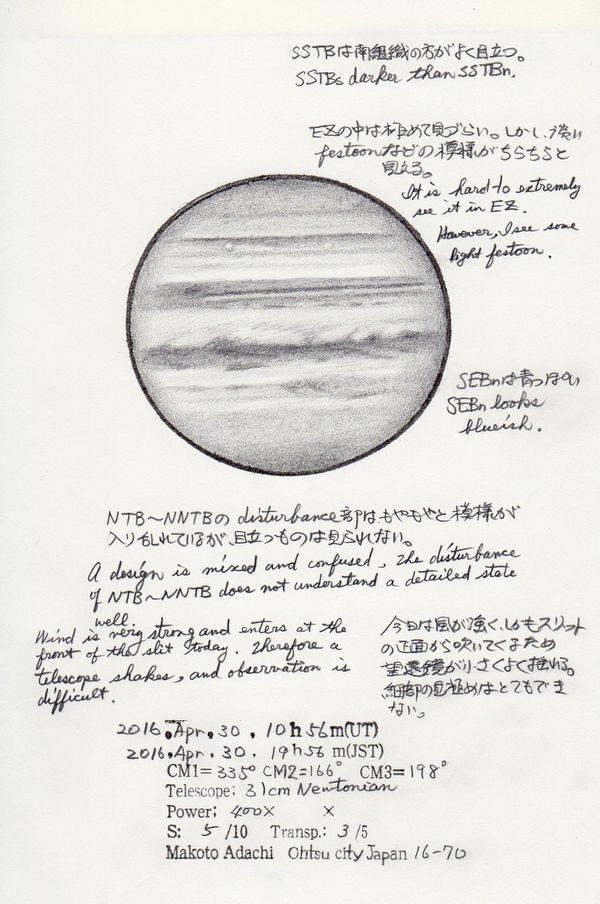 SSTBは南組織の方がよく目立つ。
SSTBs darker than SSTBn.
EZの中は極めて見づらい。しかし、淡い
festoonなどの模様がちらちらと
見える。
It is hard to extremely
see it in EZ.
However, I see some
light festoon.
SEBnは青っぽい
SEBn looks
blueish.
NTB〜NNTBのdisturbance部は、もやもやと模様が
入り乱れているが、目立つものは見られない。
A design is mixed and confused, the disturbance
of NTB~NNTB does not understand a detailed state
well.
Wind is very strong and enters at the
front of the slit today. Therefore a
telescope shakes, and observation is
difficult.
今日は風が強く、しかもスリット
の正面から吹いてくるため
望遠鏡が小さくよく揺れる。
細部の見極めはとてもでき
ない。
2016.Apr.30. 10h56m(UT)
2016.Apr.30. 19h56m(JST)
CM1=335° CM2=166° CM3=198°
Telescope: 31cm Newtonian
Power: 400× ×
S: 5/10 Transp.: 3/5
Makoto Adachi Ohtsu city Japan 16-70